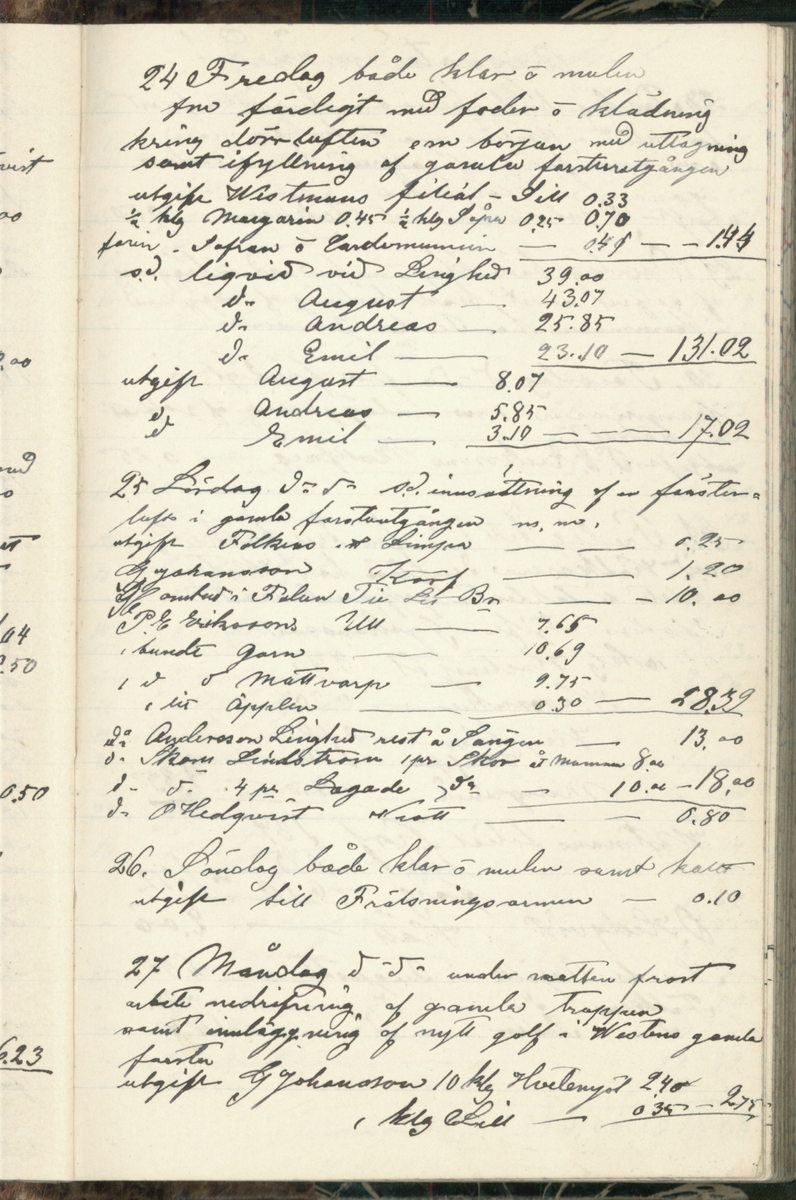 24 Fredag både klar ō mulen
fm färdigt med foder ō klädning
kring dörr luften em början med uttagning
samt ifyllning af gamla farstuutgången
utgift Westmans filial - Sill 0.33
½ klg Margarin 0.45 ½ klg Såpa 0.25 0.70
farin. Safran ō Cardemumin — 0.41 — - 1.44
s.d. liqvid vid Linghed 39.00
d:o August — 43.07
d:o Andreas — 25.85
d:o Emil — 23.10 — 131.02
utgift August — 8.07
d Andreas — 5.85
d Emil — 3.10 — — — 17.02
25 Lördag d:o d:o s.d. innsättning af en fönster-
luft i gamla farstuutgången m, m,
utgift Folkens Limpa — — 0.25
G Johansson Korf — 1.20
i Falun Br — - 10.00
P E Erikssons Ull — 7.65
1 bundt Garn — 10.69
1 d ō Mattvarp — 9.75
1 lit Äpplen — 0.30 — 28.39
d:o Andersson Linghed rest å Sängen — 13.00
d:o Skom Lindström 1 pr Skor åt Mamma 8.00
d:o d:o 4 pr Lagade d:o — 10.00 - 18.00
d:o O Hedqvist — — 0.80
26. Söndag både klar ō mulen samt kallt
utgift till Frälsningsarmen — 0.10
27 Måndag d:o d:o under natten frost
arbete nedrifning af gamla trappen
samt innläggning af nytt golf i Westens gamla
farstu
utgift G Johansson 10 klg Hvetemjöl 2.40
1 klg Sill — 0.35 - 2.75